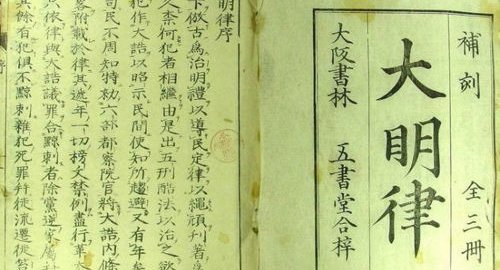 補刻 全三冊
大明律
大阪書林 五書堂合梓
明律序
下倣古為治明禮以導民定律以繩頑刊著
久奈何犯者相繼由是出五刑酷法以治之欲
犯作大誥以昭示民間使知所趨避又有年
司民不周知特勑六部都察院官將大誥內條
附載於律其遞年一切榜文禁例盡行革
依律與大誥議罪合黥刺者除黨逆家属
其餘有犯俱不黥刺雜犯死罪并徒流遷徙笞
序